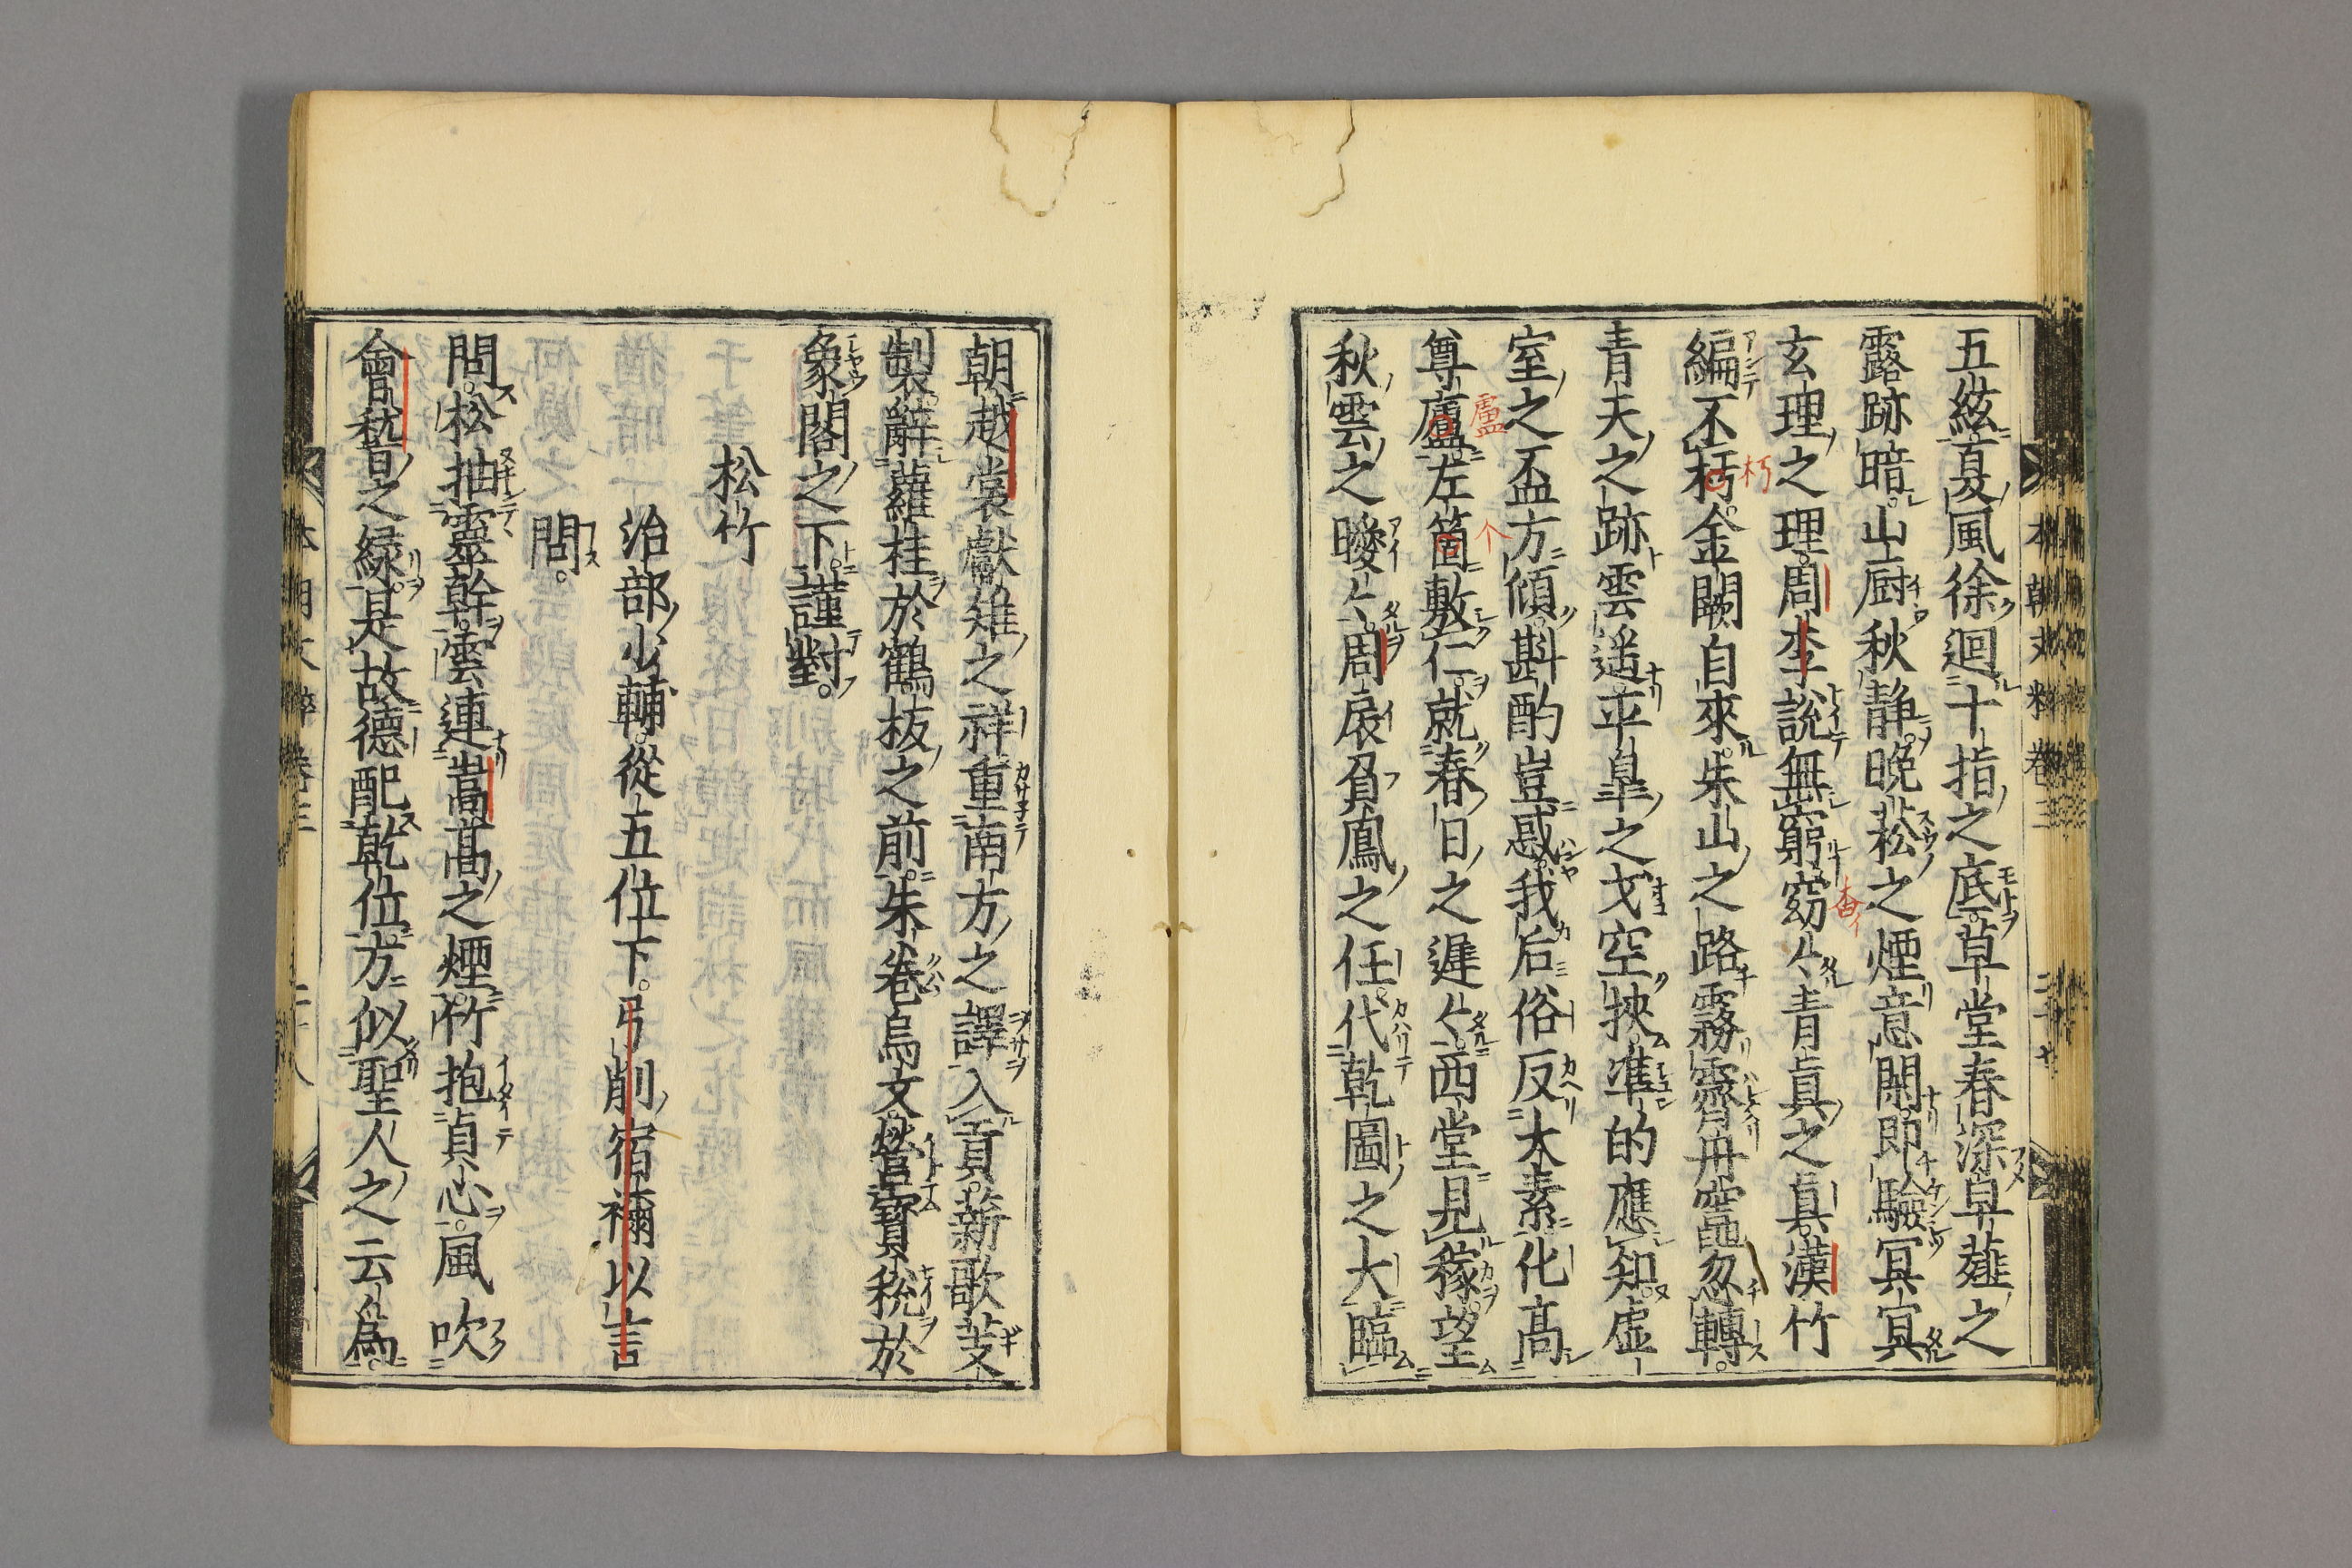 五絃夏風徐迴十指之底草堂春深皐薤之
露跡暗山厨秋静晩菘之煙意閑即驗冥冥
玄理之理周李說無窮窈々青眞之眞漢竹
編不朽金闕自來朱山之路霧霽丹竈忽轉
青天之跡雲遥平皐之戈空挾準的應知虛
室之盃方傾斟酌豈惑我后俗反太素化高
尊廬左箇敷仁就春日之遲々西堂見稼望
秋雲之曖々周扆負鳳之任代乾圖之大臨
盧
个
朽
杳イ
本朝文粹卷三
朝越裳獻雉之祥重南方之譯入貢薪歌芟
製辭蘿桂於鶴板之前朱卷烏文螢寶秘於
象閣之下謹對
松竹
治部少輔從五位下弓削宿禰以言
問
問松抽靈幹雲連嵩高之煙竹抱貞心風吹
會稽之緑是故德配乾位方似聖人之云爲
本朝文粹卷三